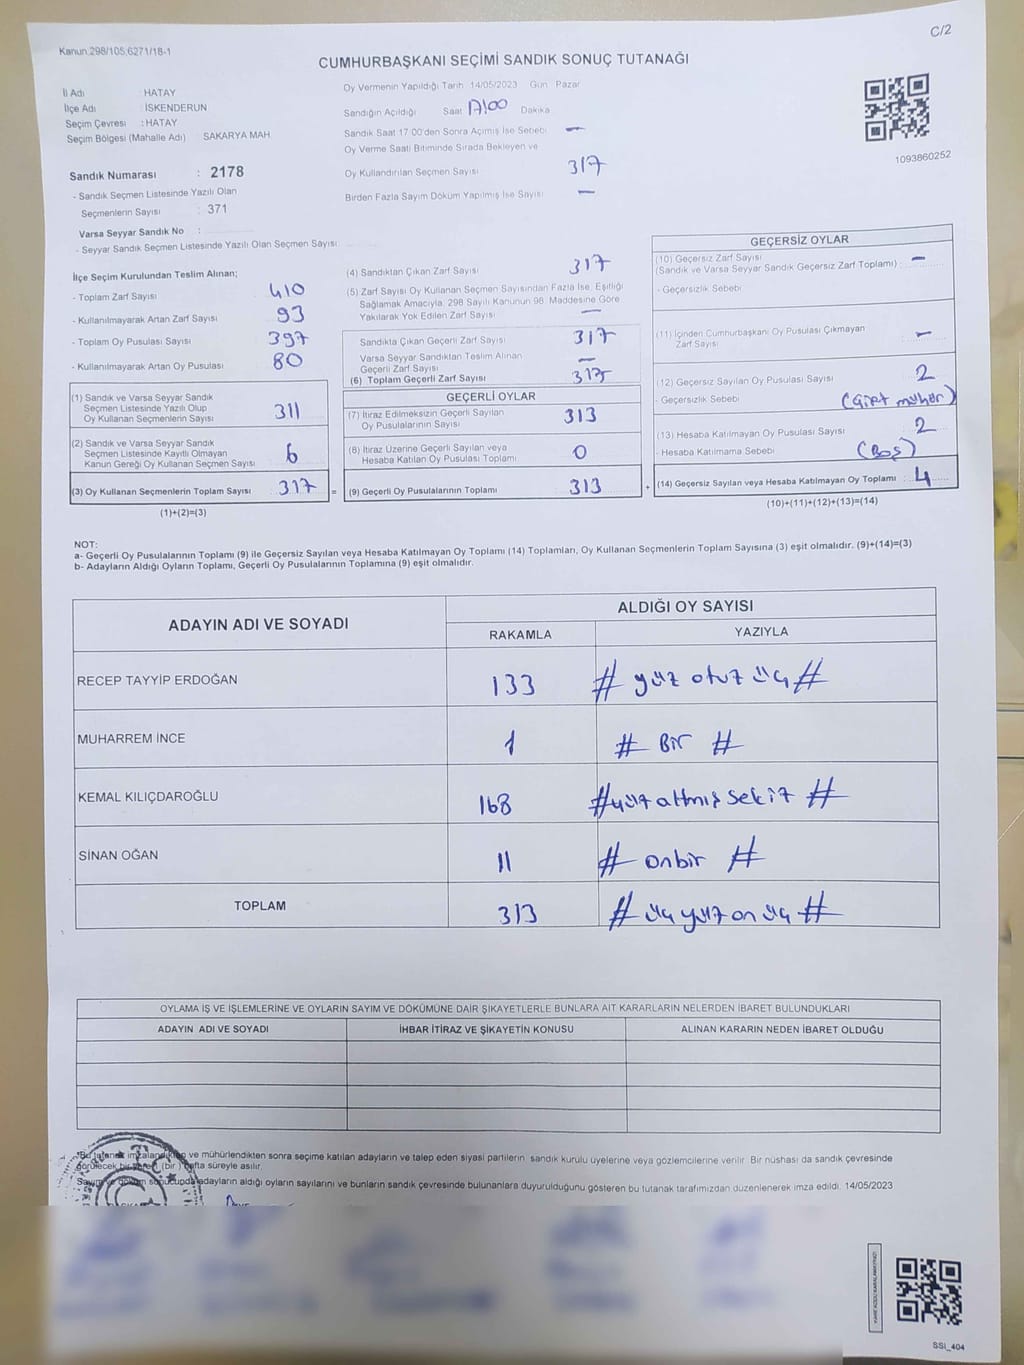 C/2
Kanun 298/105,6271/18-1
CUMHURBAŞKANI SEÇİMİ SANDIK SONUÇ TUTANAĞI
İl Adı : HATAY
İlçe Adı : İSKENDERUN
Seçim Çevresi : HATAY
Seçim Bölgesi (Mahalle Adı) SAKARYA MAH
Sandık Numarası : 2178
- Sandık Seçmen Listesinde Yazılı Olan
Seçmenlerin Sayısı : 371
Varsa Seyyar Sandık No :
- Seyyar Sandık Seçmen Listesinde Yazılı Olan Seçmen Sayısı
Oy Vermenin Yapıldığı Tarih 14/05/2023 Gün Pazar
Sandığın Açıldığı Saat 17:00 Dakika
Sandık Saat 17 00'den Sonra Açımış İse Sebebi —
Oy Verme Saati Bitiminde Sırada Bekleyen ve
Oy Kullandırılan Seçmen Sayısı 317
Birden Fazla Sayım Döküm Yapılmış İse Sayısı —
1093860252
İlçe Seçim Kurulundan Teslim Alınan;
- Toplam Zarf Sayısı 410
- Kullanılmayarak Artan Zarf Sayısı 93
- Toplam Oy Pusulası Sayısı 397
- Kullanılmayarak Artan Oy Pusulası 80
(1) Sandık ve Varsa Seyyar Sandık
Seçmen Listesinde Yazılı Olup
Oy Kullanan Seçmenlerin Sayısı 311
(2) Sandık ve Varsa Seyyar Sandık
Seçmen Listesinde Kayıtlı Olmayan
Kanun Gereği Oy Kullanan Seçmen Sayısı 6
(3) Oy Kullanan Seçmenlerin Toplam Sayısı 317 =
(1)+(2)=(3)
(4) Sandıktan Çıkan Zarf Sayısı 317
(5) Zarf Sayısı Oy Kullanan Seçmen Sayısından Fazla İse, Eşitliği
Sağlamak Amacıyla, 298 Sayılı Kanunun 98. Maddesine Göre
Yakılarak Yok Edilen Zarf Sayısı —
Sandıkta Çıkan Geçerli Zarf Sayısı 317
Varsa Seyyar Sandıktan Teslim Alınan
Geçerli Zarf Sayısı —
(6) Toplam Geçerli Zarf Sayısı 317
GEÇERLİ OYLAR
(7) İtiraz Edilmeksizin Geçerli Sayılan
Oy Pusulalarının Sayısı 313
(8) İtiraz Üzerine Geçerli Sayılan veya
Hesaba Katılan Oy Pusulası Toplamı 0
(9) Geçerli Oy Pusulalarının Toplamı 313 +
GEÇERSİZ OYLAR
(10) Geçersiz Zarf Sayısı
(Sandık ve Varsa Seyyar Sandık Geçersiz Zarf Toplamı) : —
- Geçersizlik Sebebi
(11) İçinden Cumhurbaşkanı Oy Pusulası Çıkmayan
Zarf Sayısı —
(12) Geçersiz Sayılan Oy Pusulası Sayısı 2
- Geçersizlik Sebebi (Çift mühür)
(13) Hesaba Katılmayan Oy Pusulası Sayısı 2
- Hesaba Katılmama Sebebi (Boş)
(14) Geçersiz Sayılan veya Hesaba Katılmayan Oy Toplamı : 4
(10)+(11)+(12)+(13)=(14)
NOT:
a- Geçerli Oy Pusulalarının Toplamı (9) ile Geçersiz Sayılan veya Hesaba Katılmayan Oy Toplamı (14) Toplamları, Oy Kullanan Seçmenlerin Toplam Sayısına (3) eşit olmalıdır. (9)+(14)=(3)
b- Adayların Aldığı Oyların Toplamı, Geçerli Oy Pusulalarının Toplamına (9) eşit olmalıdır.
ADAYIN ADI VE SOYADI
ALDIĞI OY SAYISI
RAKAMLA YAZIYLA
RECEP TAYYİP ERDOĞAN 133 # yüz otuz üç #
MUHARREM İNCE 1 # Bir #
KEMAL KILIÇDAROĞLU 168 # yüz altmış sekiz #
SİNAN OĞAN 11 # onbir #
TOPLAM 313 # üç yüz on üç #
OYLAMA İŞ VE İŞLEMLERİNE VE OYLARIN SAYIM VE DÖKÜMÜNE DAİR ŞİKAYETLERLE BUNLARA AİT KARARLARIN NELERDEN İBARET BULUNDUKLARI
ADAYIN ADI VE SOYADI İHBAR İTİRAZ VE ŞİKAYETİN KONUSU ALINAN KARARIN NEDEN İBARET OLDUĞU
ve mühürlendikten sonra seçime katılan adayların ve talep eden siyasi partilerin sandık kurulu üyelerine veya gözlemcilerine verilir. Bir nüshası da sandık çevresinde
görülecek bir yere (bir) hafta süreyle asılır.
Sayım ve döküm sonucunda adayların aldığı oyların sayılarını ve bunların sandık çevresinde bulunanlara duyurulduğunu gösteren bu tutanak tarafımızdan düzenlenerek imza edildi. 14/05/2023
SSI_404